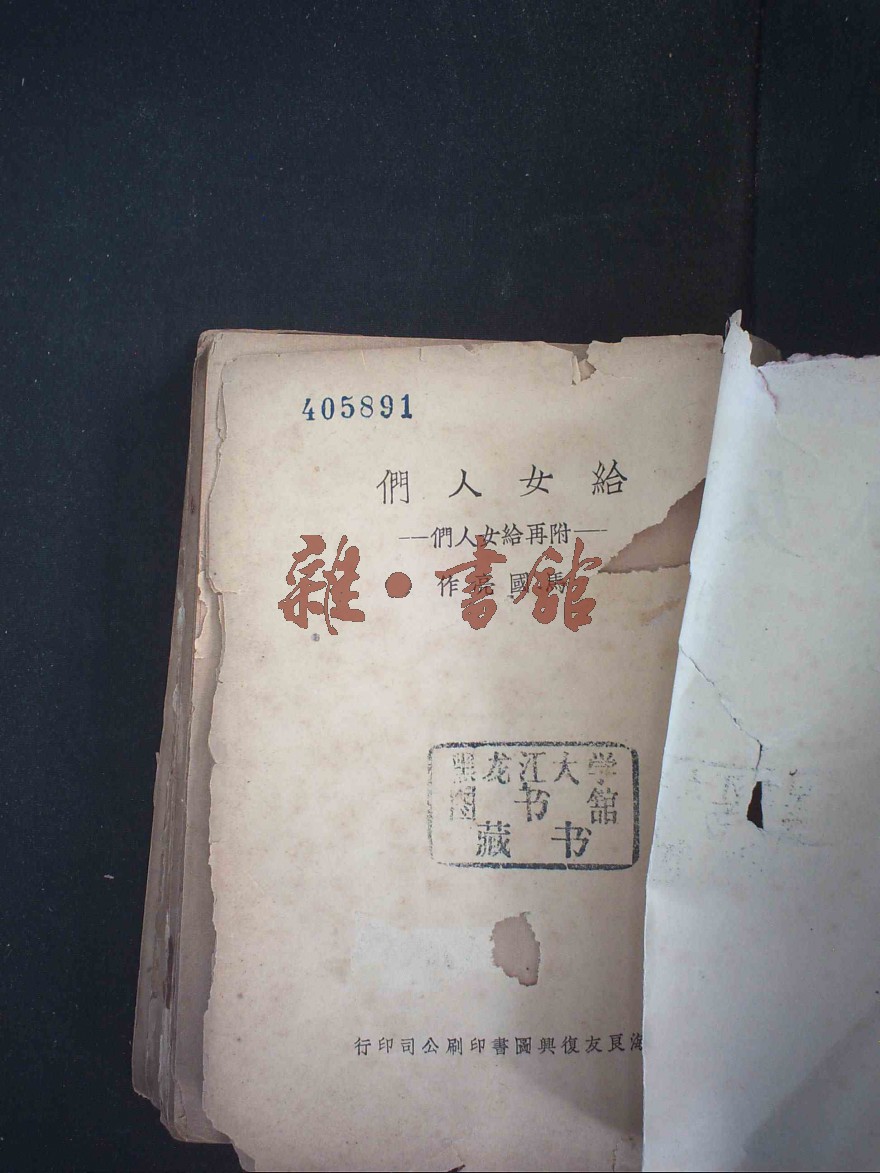 405891
給女人們
——附再給女人們——
馬國亮作
雜·書館
黑龙江大学
图书舘
藏书
海良友復興圖書印刷公司印行